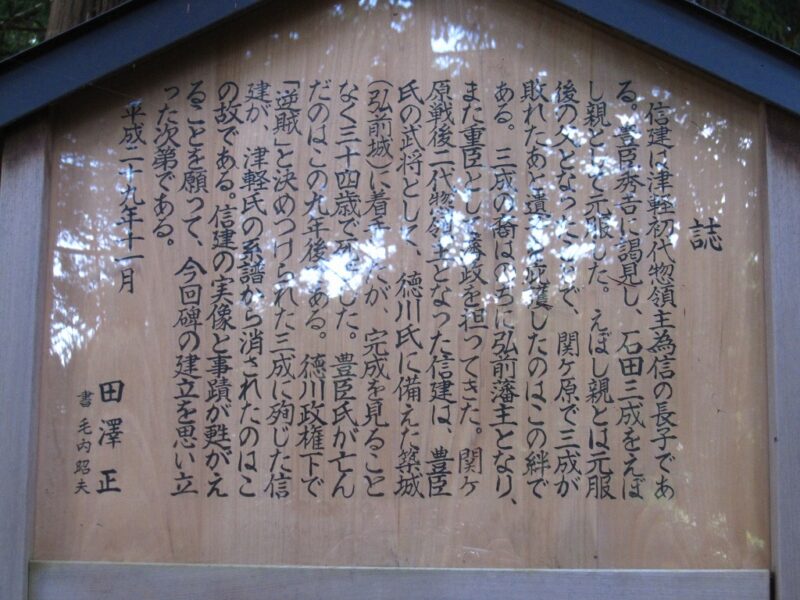 誌
信建は津軽初代惣領主為信の長子であ
る。豊臣秀吉に謁見し、石田三成をえぼ
し親として元服した。えぼし親とは元服
後の父となったことで、関ヶ原で三成が
敗れたあと遺を庇護したのはこの絆で
ある。三成の裔はのちに弘前藩主となり、
また重臣として藩政を担ってきた。関ヶ
原戦後二代惣領主となった信建は、豊臣
氏の武将として、徳川氏に備えた築城
(弘前城)に着手したが、完成を見ること
なく三十四歳で死した。豊臣氏が亡ん
だのはこの九年後である。徳川政権下で
「逆賊」と決めつけられた三成に殉じた信
建が、津軽氏の系譜から消されたのはこ
の故である。信建の実像と事蹟が甦がえ
ることを願って、今回碑の建立を思い立
った次第である。
平成二十九年十一月
田澤 正
書 毛内昭夫